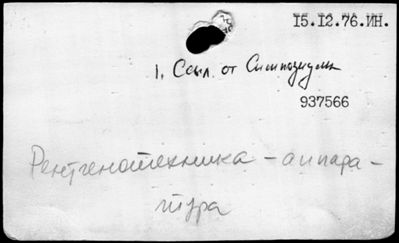 15.12.76.ИН.
1. Ссыл. от Симпозиум
937566
Рентгенотехника - аппара-
тура